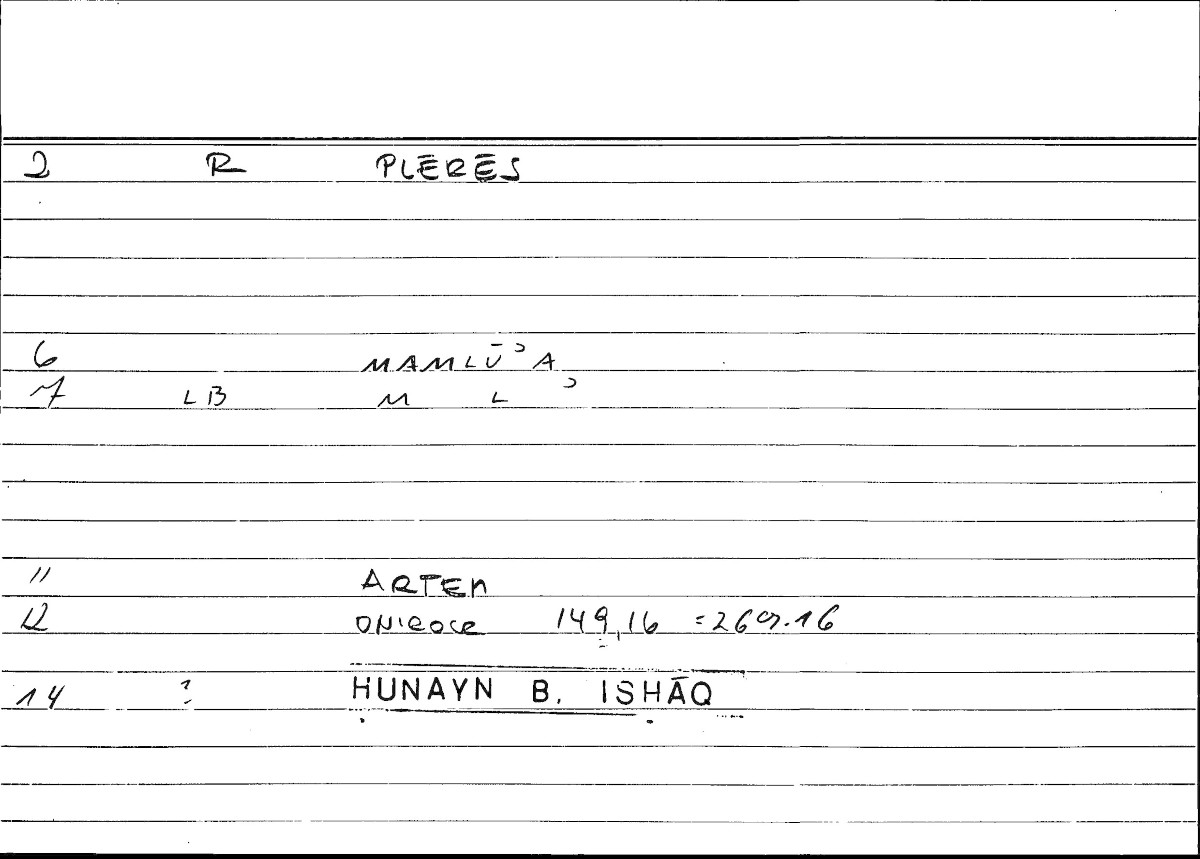 2 R PLĒRĒS
6 MAMLŪʾA
7 LB M L ʾ
11 ARTEM
12 ONIROCR 149,16 = 269.16
14 ? ḤUNAYN B. ISḤĀQ